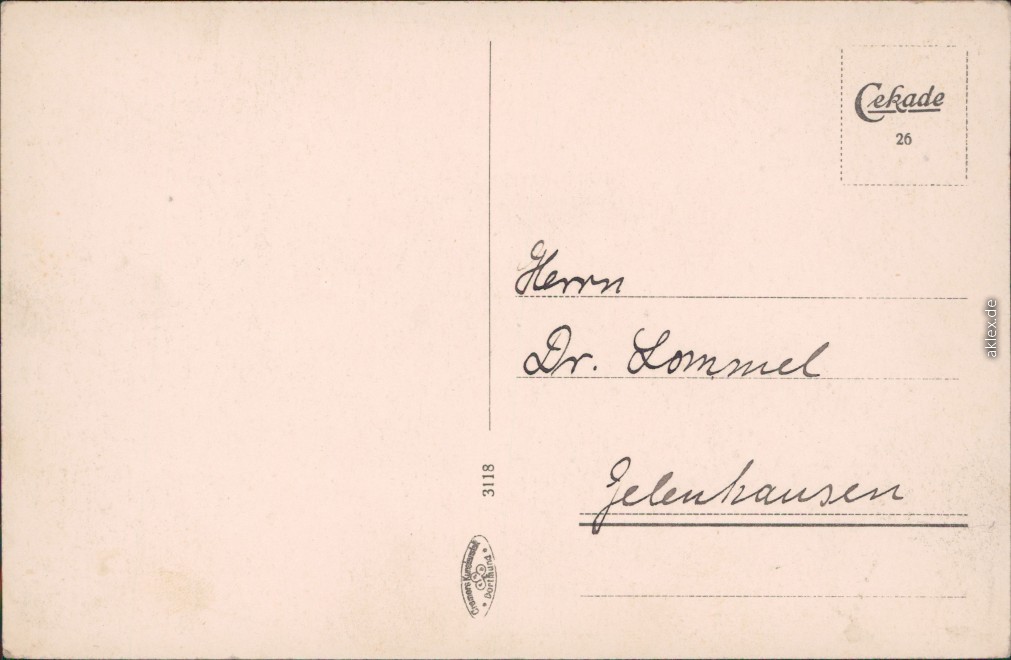 Cekade
26
Herrn
Dr. Lommel
Gelenhausen
3118
Cramers Kunstanstalt
* Dortmund *
aklex.de